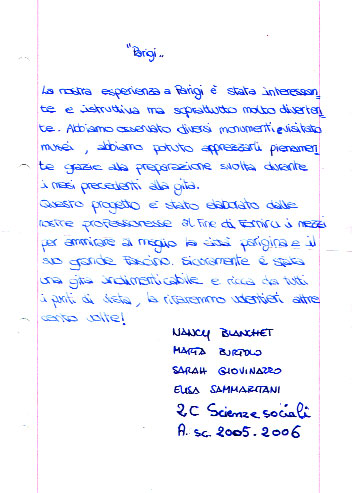 "Parigi"
La nostra esperienza a Parigi è stata interessan-
te e istruttiva ma soprattutto molto diverten-
te. Abbiamo osservato diversi monumenti, e visitato
musei, abbiamo potuto apprezzarli pienamen-
te grazie alla preparazione svolta durante
i mesi precedenti alla gita.
Questo progetto è stato elaborato dalle
nostre professoresse al fine di fornirci i mezzi
per ammirare al meglio la città parigina e il
suo grande fascino. Sicuramente è stata
una gita indimenticabile e ricca da tutti
i punti di vista, la rifaremmo volentieri altre
cento volte!
NANCY BLANCHET
MARTA BURTOLO
SARAH GIOVINAZZO
ELISA SAMMARITANI
2C Scienze sociali
A. sc. 2005-2006